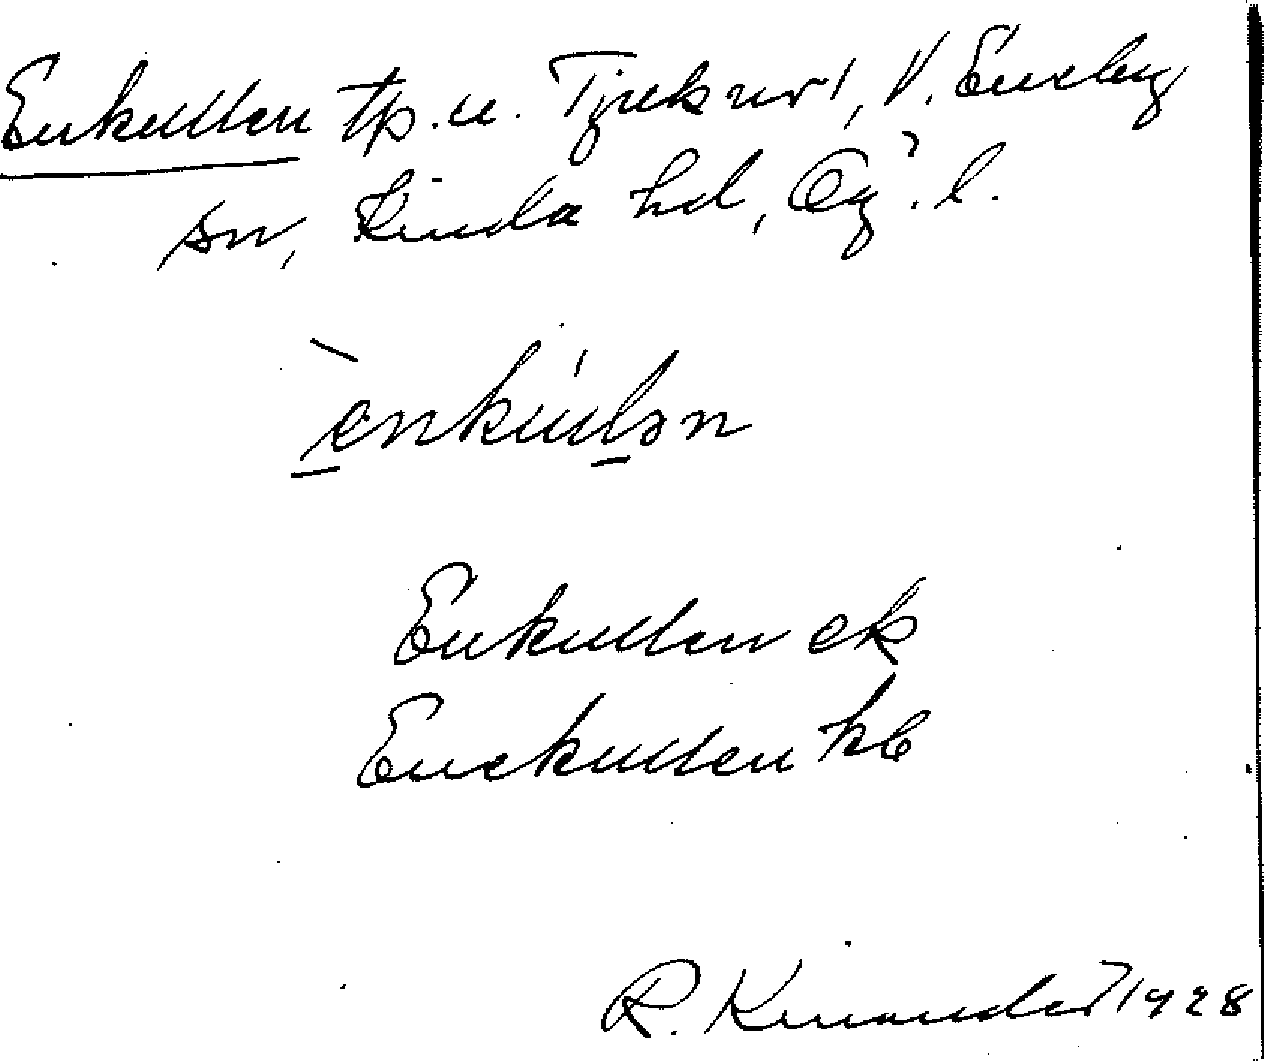 Enkullen tp. u. Tjuksrs!, V. Eneby
sn, Kinda hd, Ög. l.
ènkúlən
Enkullen ek
Enekullen kb
R. Kinander 1928